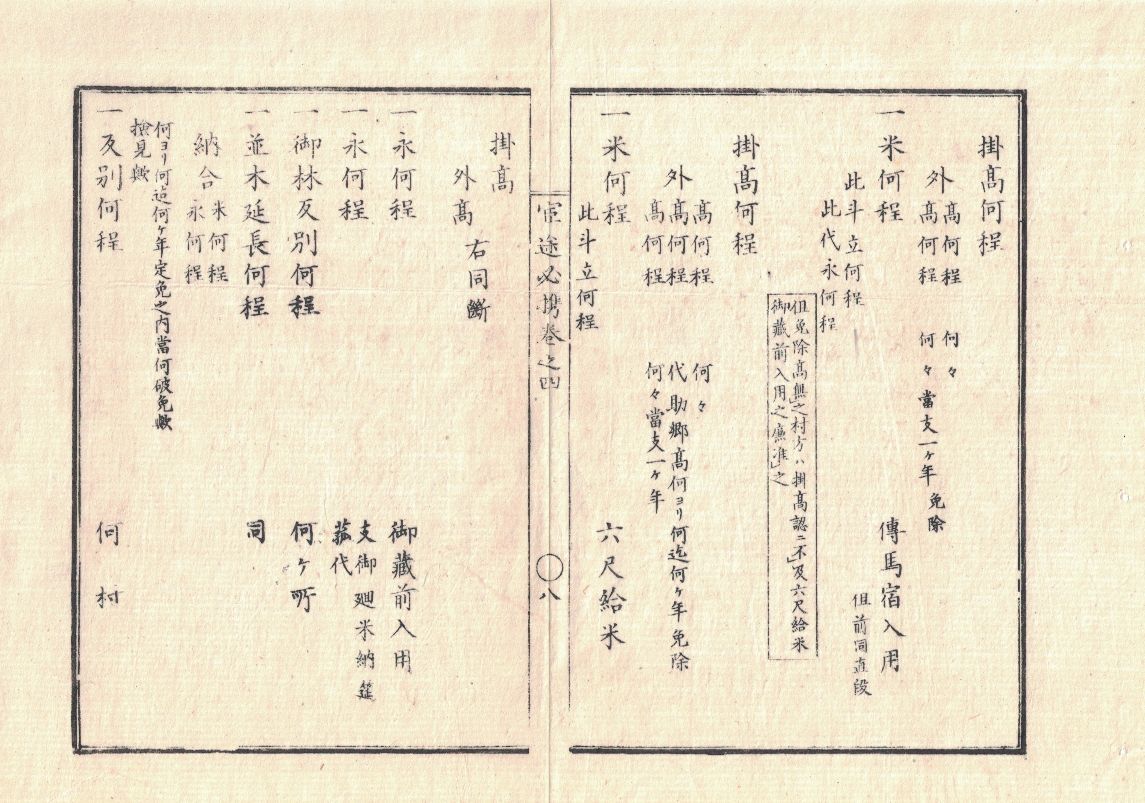 掛髙何程
外髙何程 何々
髙何程 何々當支一ヶ年免除
一米何程 傳馬宿入用
此斗立何程 但前同直段
此代永何程
但免除髙無之村方ハ掛髙認ニ不及六尺給米
御藏前入用之廉准之
掛髙何程
髙何程 何々
外髙何程 代助郷髙何ヨリ何迄何ヶ年免除
髙何程 何々當支一ヶ年
一米何程 六尺給米
此斗立何程
官途必携巻之四 〇八
掛髙
外髙 右同断
一永何程 御藏前入用
一永何程 支御廻米納筵
菰代
一御林反別何程 何ヶ所
一並木延長何程 同
納合米何程
永何程
何ヨリ何迄何ヶ年定免之内當何破免歟
撿見歟
一反別何程 何村